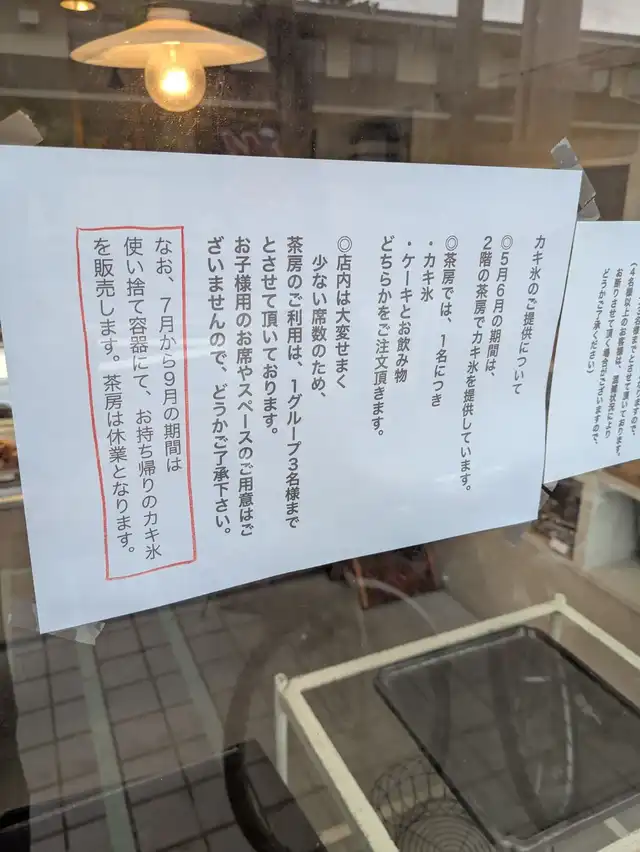 (4名様以上のお客様は、混雑状況により
お断りさせて頂く場合がございますので、
どうかご了承ください)
カキ氷のご提供について
◎5月6月の期間は、
2階の茶房でカキ氷を提供しています。
◎茶房では、1名につき
・カキ氷
・ケーキとお飲み物
どちらかをご注文頂きます。
◎店内は大変せまく
少ない席数のため、
茶房のご利用は、1グループ3名様まで
とさせて頂いております。
お子様用のお席やスペースのご用意はご
ざいませんので、どうかご了承下さい。
なお、7月から9月の期間は
使い捨て容器にて、お持ち帰りのカキ氷
を販売します。茶房は休業となります。